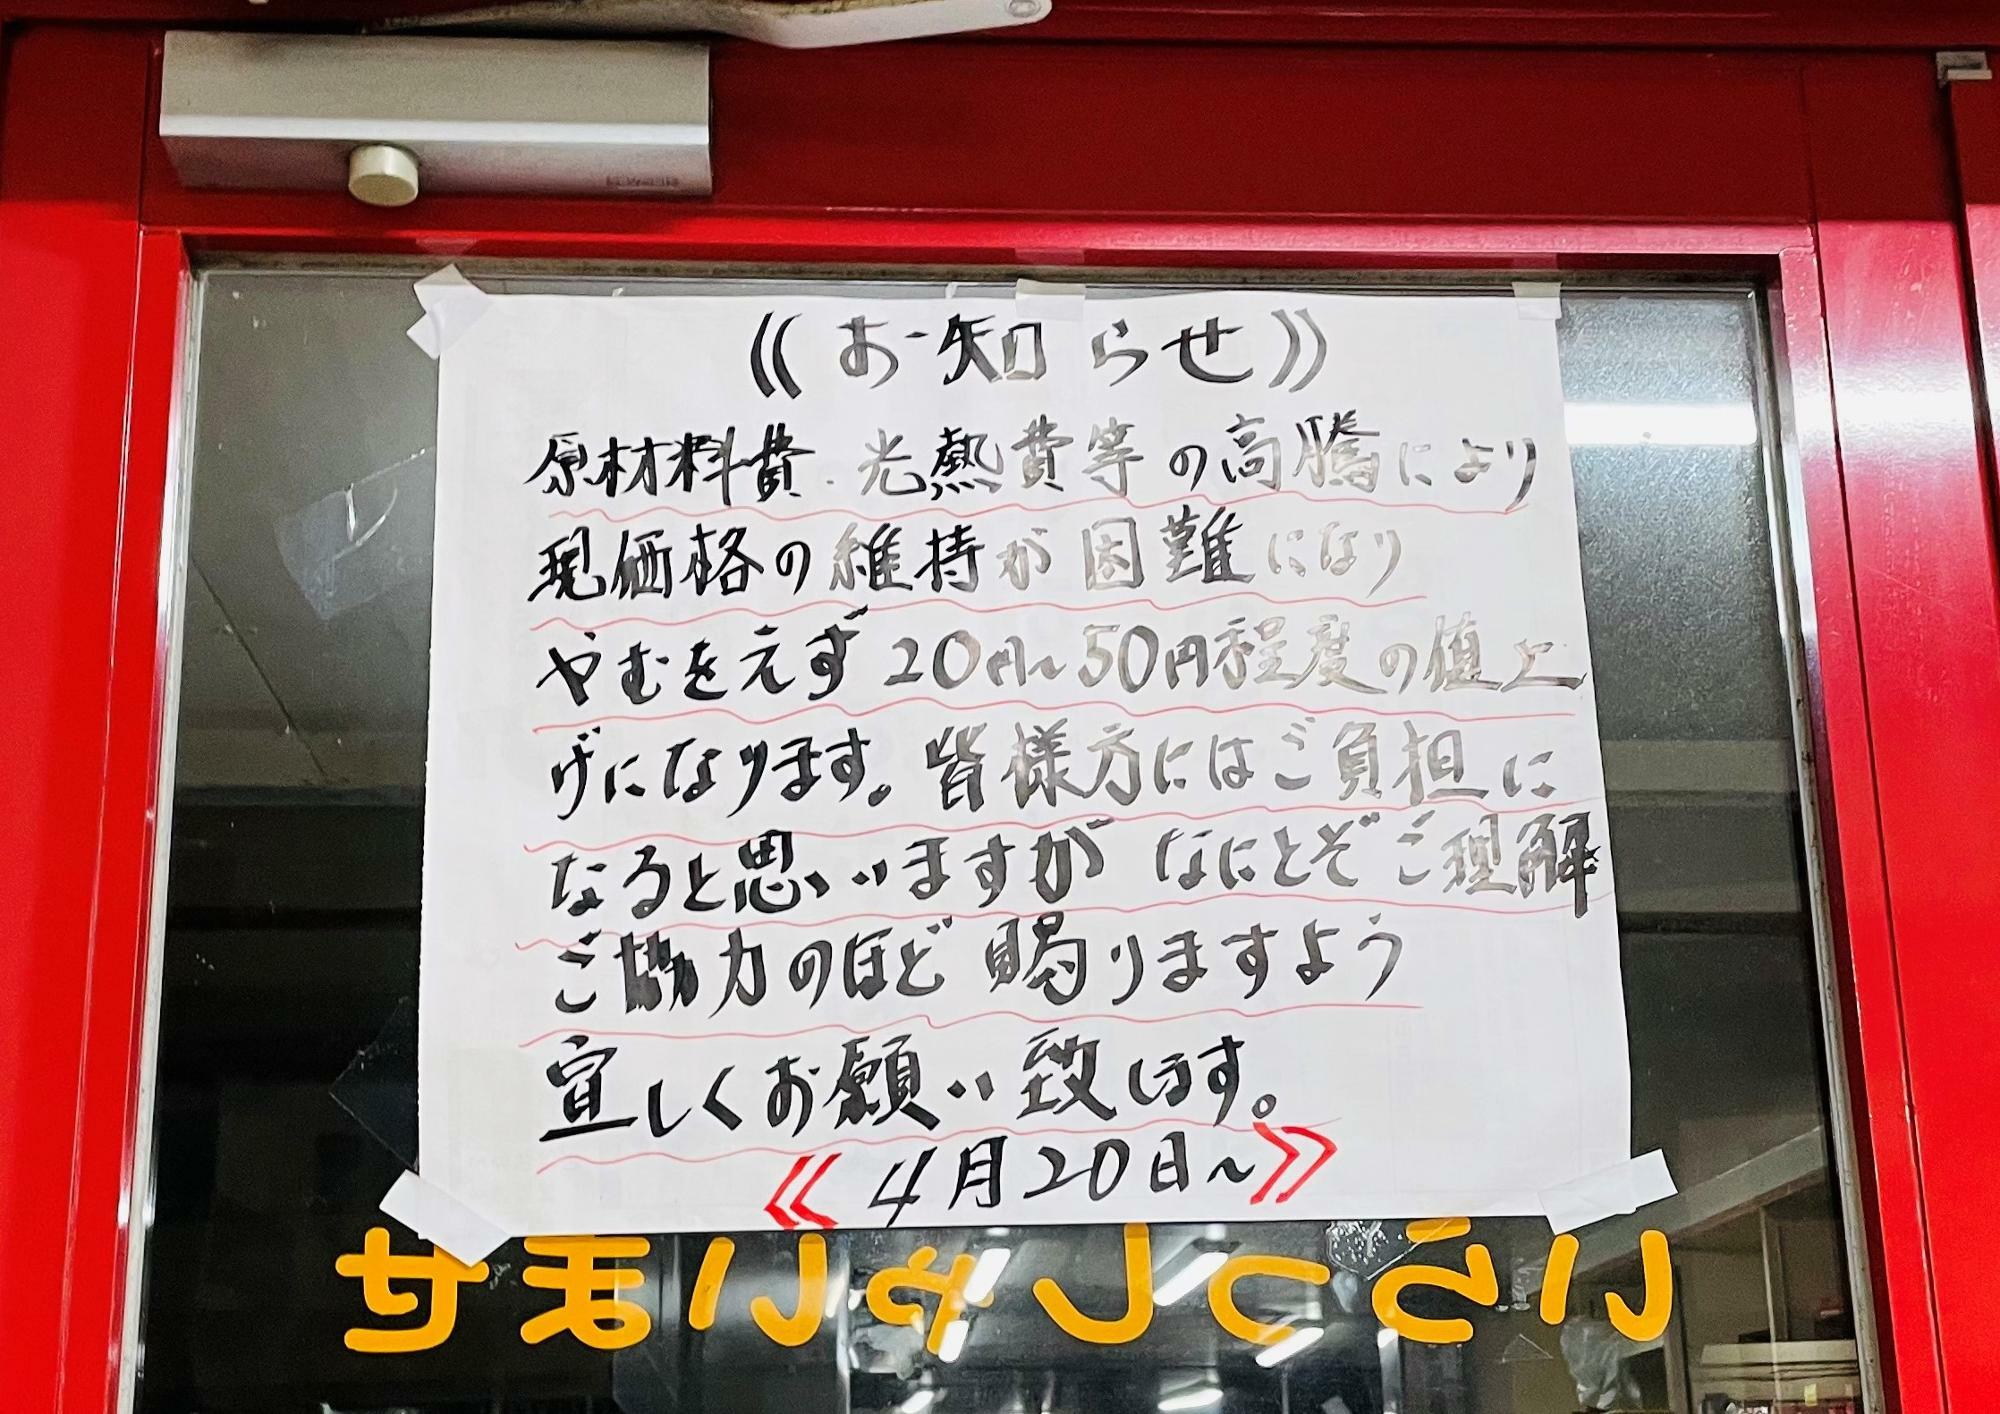 《お知らせ》
原材料費.光熱費等の高騰により
現価格の維持が困難になり
やむをえず20円〜50円程度の値上
げになります。皆様方にはご負担に
なると思いますがなにとぞご理解
ご協力のほど賜りますよう
宜しくお願い致します。
《4月20日〜》
いらっしゃいませ